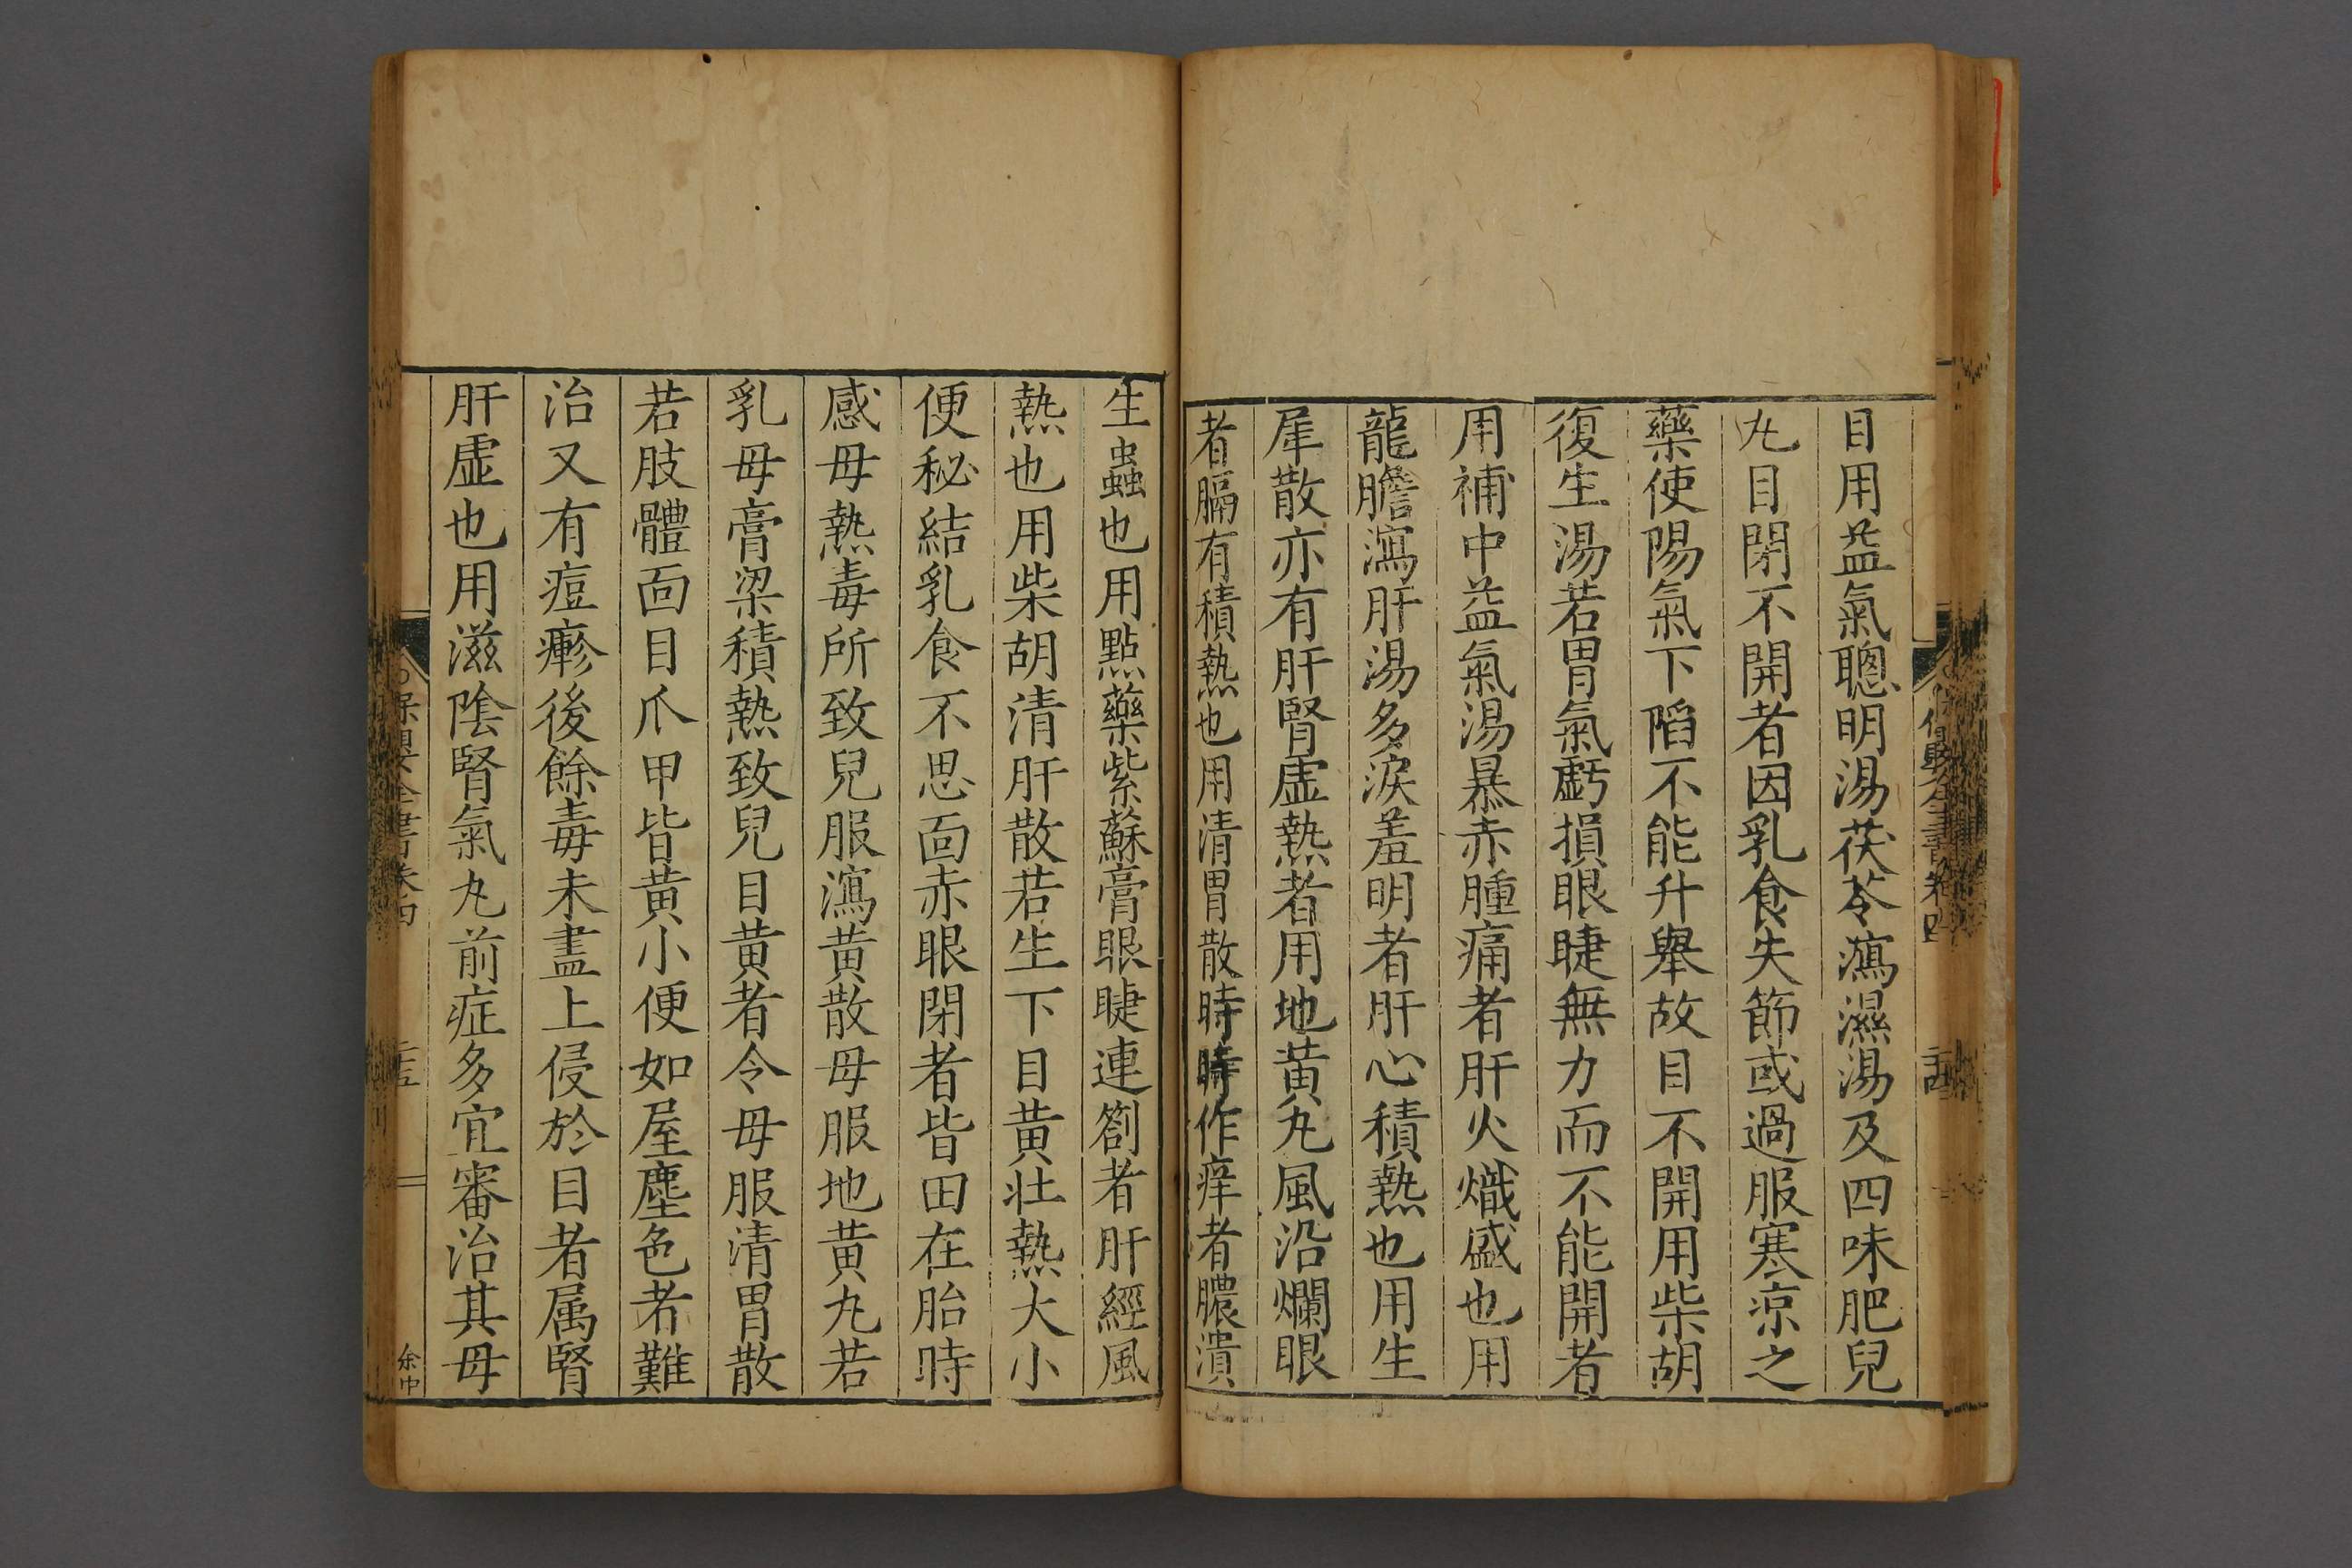 目用益氣聰明湯茯苓瀉濕湯及四味肥兒
丸目閉不開者因乳食失節或過服寒涼之
藥使陽氣下陷不能升舉故目不開用柴胡
復生湯若胃氣虧損眼睫無力而不能開者
用補中益氣湯暴赤腫痛者肝火熾盛也用
龍膽瀉肝湯多淚羞明者肝心積熱也用生
犀散亦有肝腎虛熱者用地黃丸風沿爛眼
者膈有積熱也用清胃散時時作痒者膿潰
生蟲也用點藥紫蘇膏眼睫連劄者肝經風
熱也用柴胡清肝散若生下目黃壯熱大小
便秘結乳食不思面赤眼閉者皆由在胎時
感母熱毒所致兒服瀉黃散母服地黃丸若
乳母膏粱積熱致兒目黃者令母服清胃散
若肢體面目爪甲皆黃小便如屋塵色者難
治又有痘瘮後餘毒未盡上侵於目者属腎
肝虛也用滋陰腎氣丸前症多宜審治其母
保嬰全書卷四
二五
余中